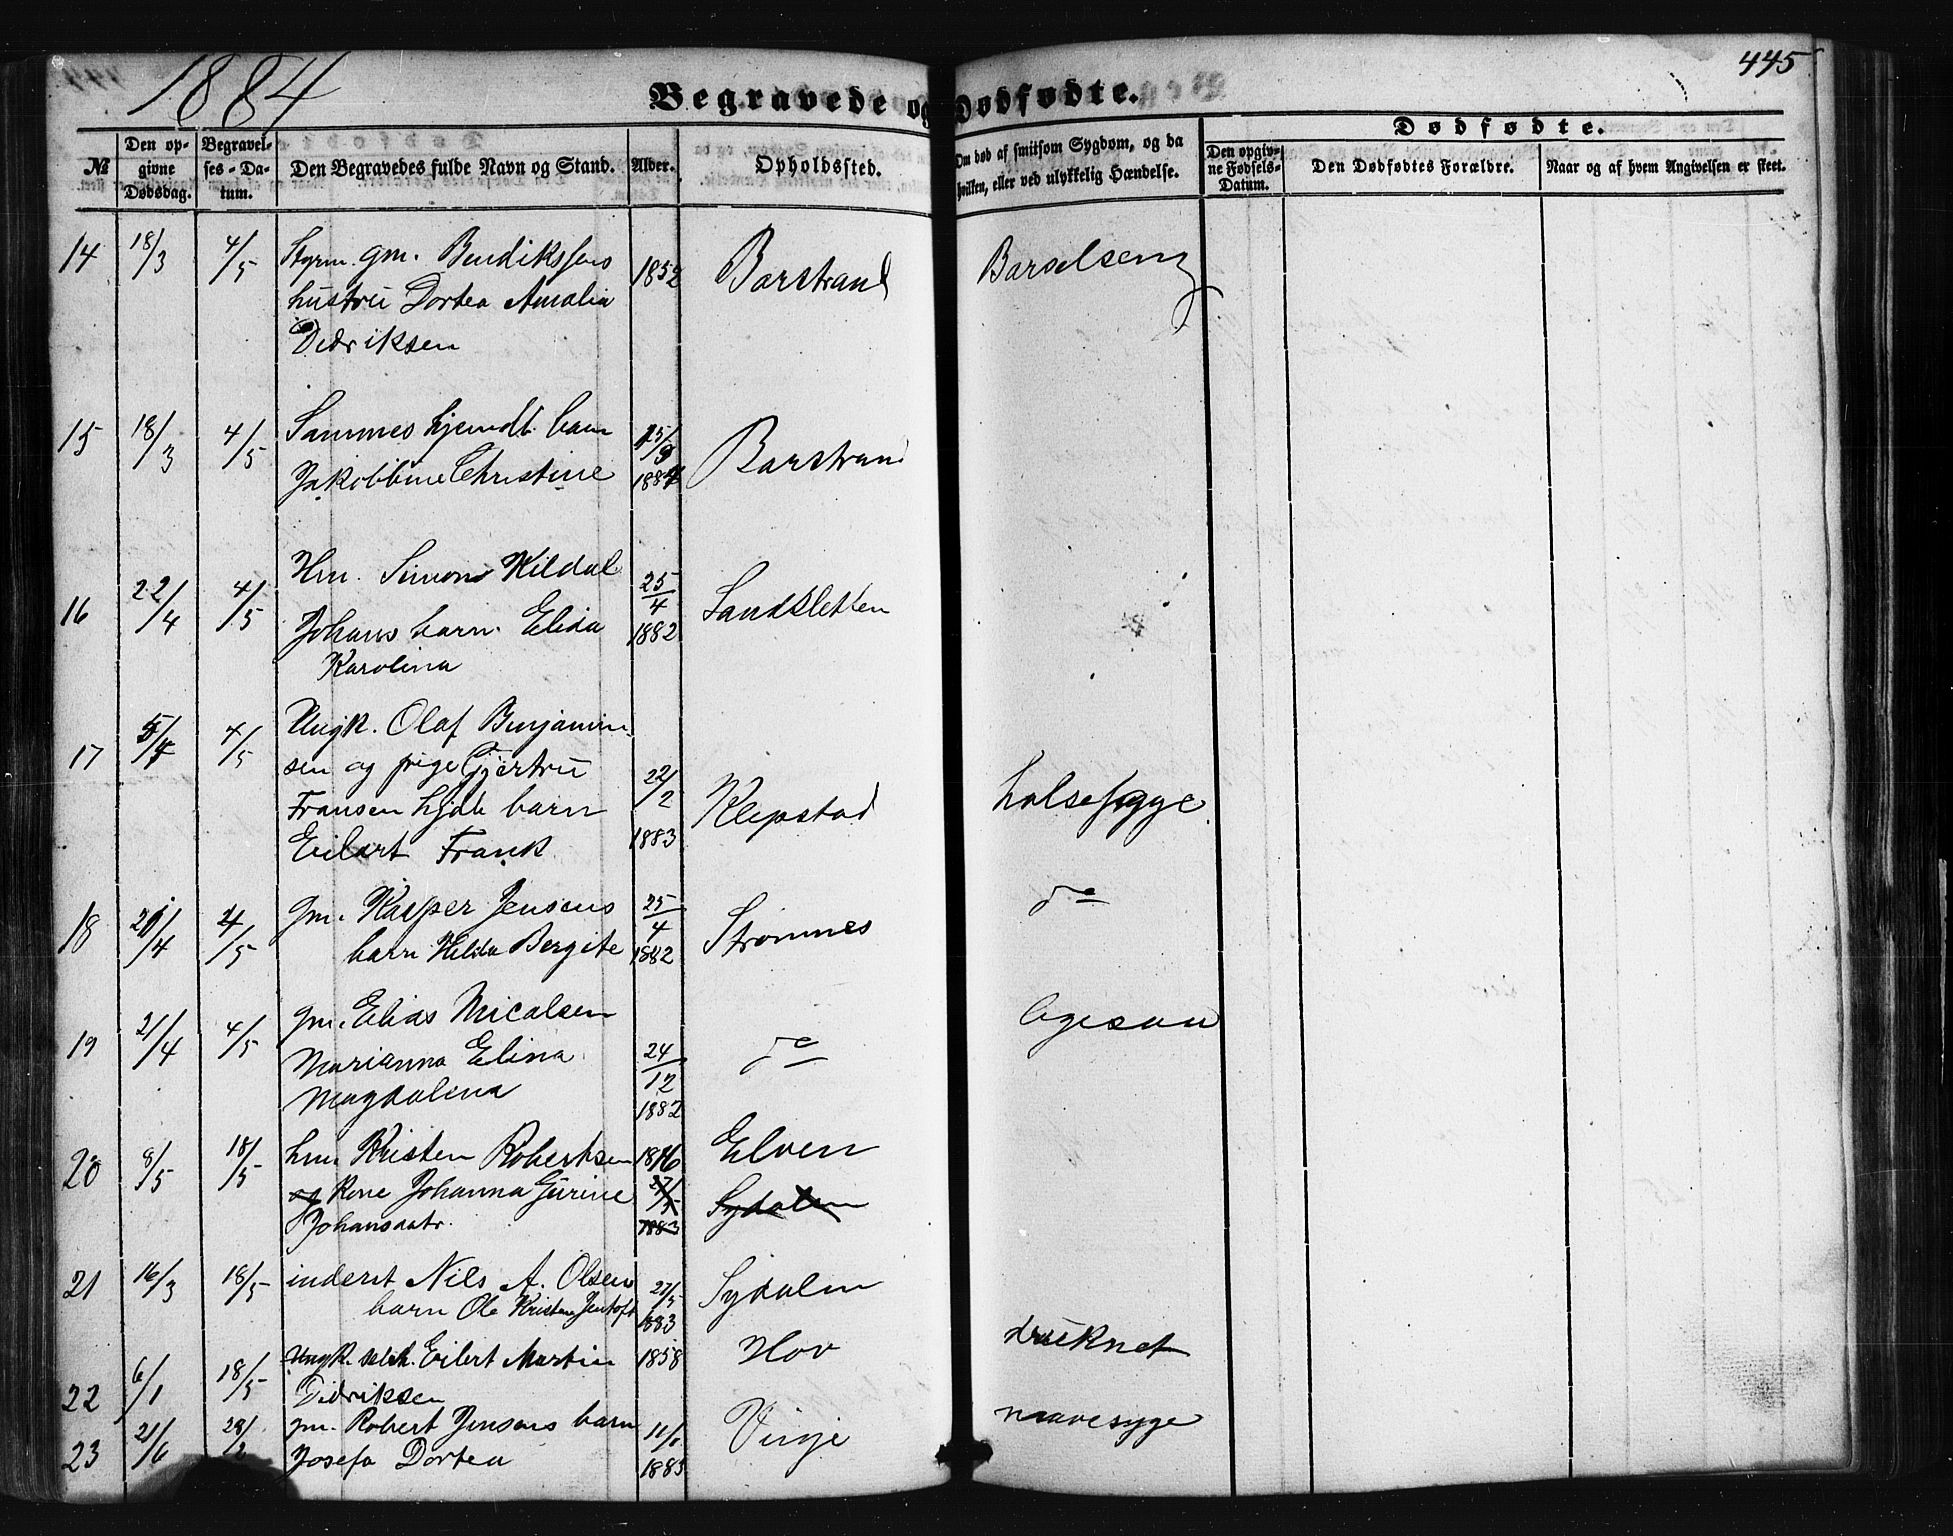 1884
445
Begravede og Dødfødte.
№
Den opgivne Dødsdag.
Begravelses-Datum.
Den Begravedes fulde Navn og Stand.
Alder.
Opholdssted.
Om død af smitsom Sygdom, og da hvilken, eller ved ulykkelig Hændelse.
Dødfødte.
Den opgivne Fødsels-Datum.
Den Dødfødtes Forældre.
Naar og af hvem Angivelsen er skeet.
14 18/3 4/5 Styrm. gm. Bendikssens 1852 Barstrand Barselseng
hustru Dortea Amalia
Didriksen
15 18/3 4/5 Sammes hjemdt. barn Barstrand
Jakobbine Christine 1884
16 22/4 4/5 Hm. Simon Kildal 25/4 1882 Sandsletten
Johans barn. Elida
Karolina
17 4/5 Ungk. Olaf Benjamin-
sen og pige Gjertru 22/2 1883 Klepstad halsesyge
Fransen hjdt barn
Eilert Frank
18 4/5 gm. Kasper Jensens 25/4 1882 Strømnes do
barn Hilda Bergite
19 21/4 4/5 gm. Elias Micalsen do ligesaa
Marianna Elina 24/12 1882
Magdalena
20 8/5 18/5 hm Kristen Robertsen 1816 Elven
og kone Johanna Gurine 27/5 1883 Sydalen
Johansdatr.
21 16/3 18/5 inderst Nils A. Olsen 27/5 1883 Sydalen
barn Ole Kristian Jentoft
22 6/1 18/5 Ungk. Eilert Martin 1858 Hov druknet
Didriksen
23 21/6 gm. Robert Jensens barn 11/1 1883 Vinje mavesyge
Josefa Dortea